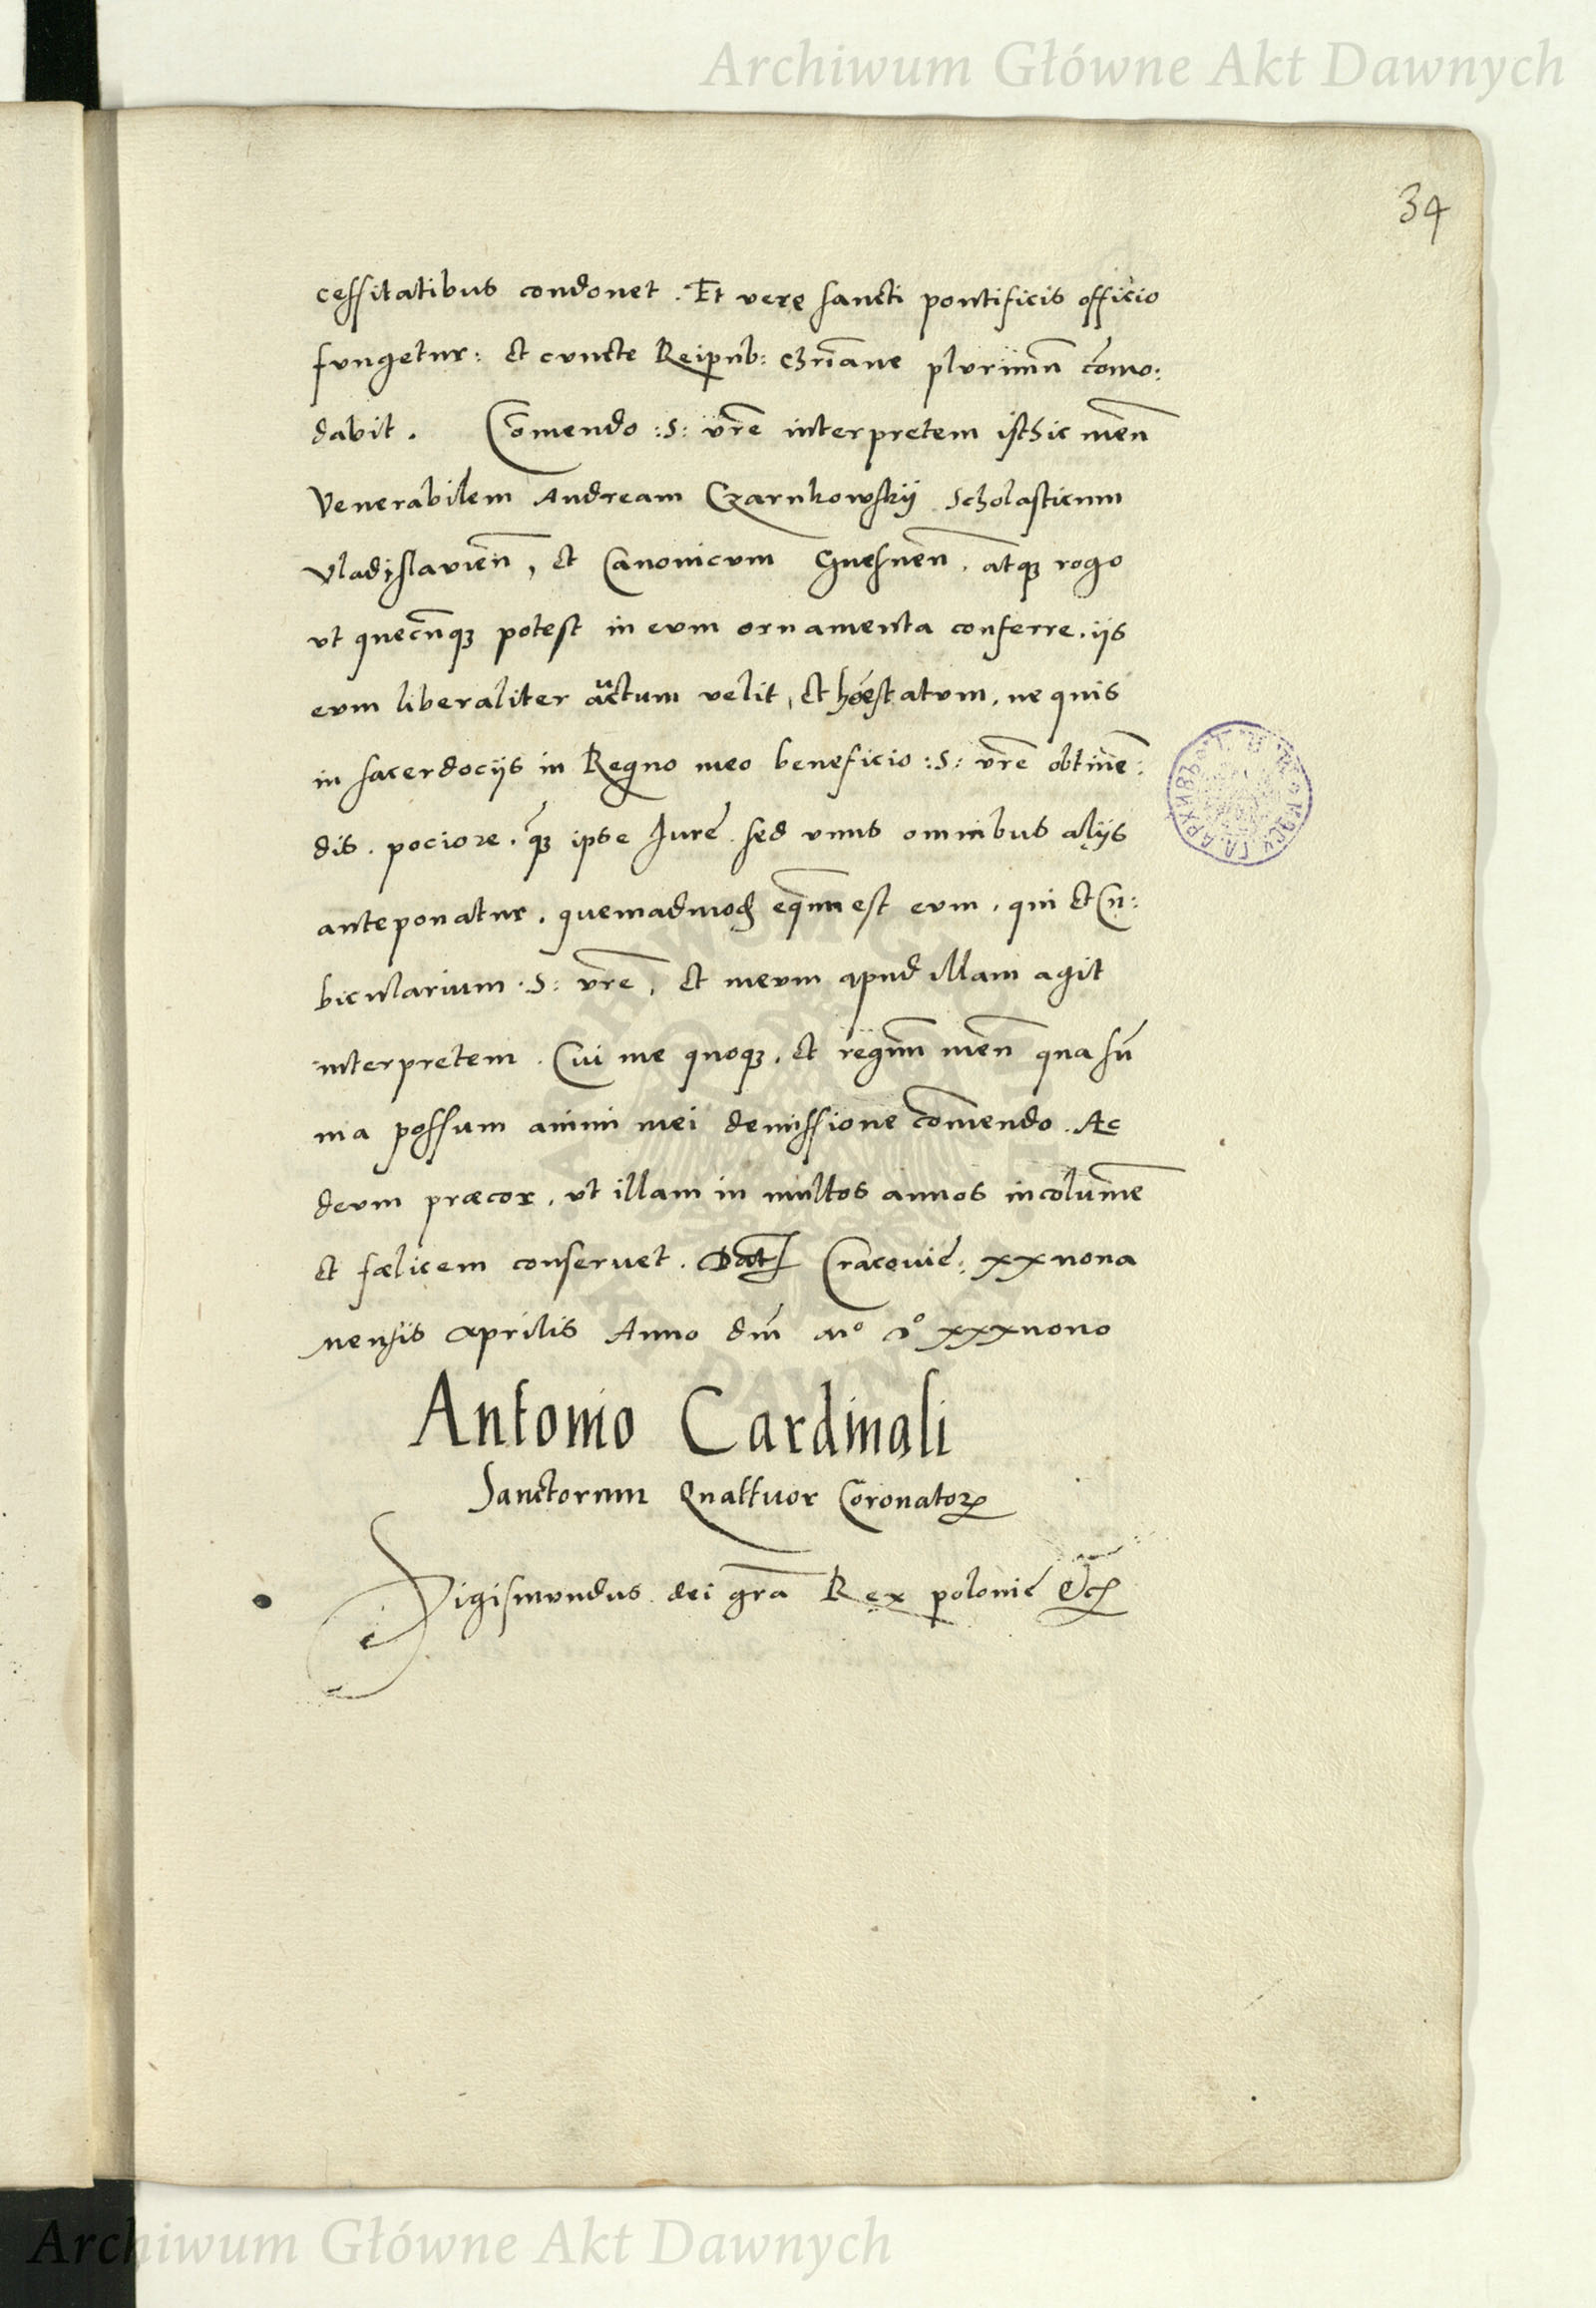 Archiwum Główne Akt Dawnych
34
cessitatibus condonet. Et vere sancti pontificis officio
fungetur: et cuncte Reipub: chriane plurimu como:
dabit. Comendo :S: vre interpretem isthic meu
Venerabilem Andream Czarnkowskij Scholasticum
Vladislavien, et Canonicum Gnesnen, atq rogo
ut quecunq potest in eum ornamenta conferre. ijs
eum liberaliter auctum velit, et hoestatum, ne quis
in sacerdocijs in Regno meo beneficio :S: vre obtine:
dis. pociore. q ipse Jure sed unus omnibus alijs
anteponatur. quemadmod equm est eum, qui et Cu:
bicularium .S: vre, et meum apud illam agit
interpretem. Cui me quoq, et regnum meu qua su
ma possum animi mei demissione comendo. Ac
deum præcor, ut illam in multos annos incolume
et fælicem conservet. Dat Cracovie: xxnona
mensis Aprilis Anno dni Mo Do xxxnono
Antonio Cardinali
Sanctorum Quattuor Coronator
Sigismundus dei gra Rex polonie Etc
Archiwum Główne Akt Dawnych